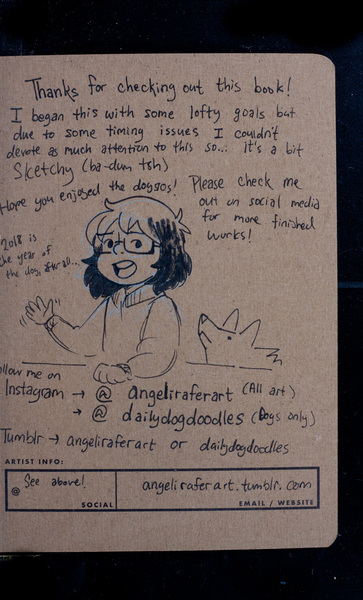 Thanks for checking out this book!
I began this with some lofty goals but
due to some timing issues I couldn't
devote as much attention to this so... it's a bit
Sketchy (ba-dum tsh)
Hope you enjoyed the doggos!
Please check me
out on social media
for more finished
works!
2018 is
the year of
the dog, after all...
ollow me on
Instagram → @ angeliraferart (All art)
→ @ dailydogdoodles (Dogs only)
Tumblr → angeliraferart or dailydogdoodles
ARTIST INFO:
@ See above!
SOCIAL
angeliraferart.tumblr.com
EMAIL / WEBSITE